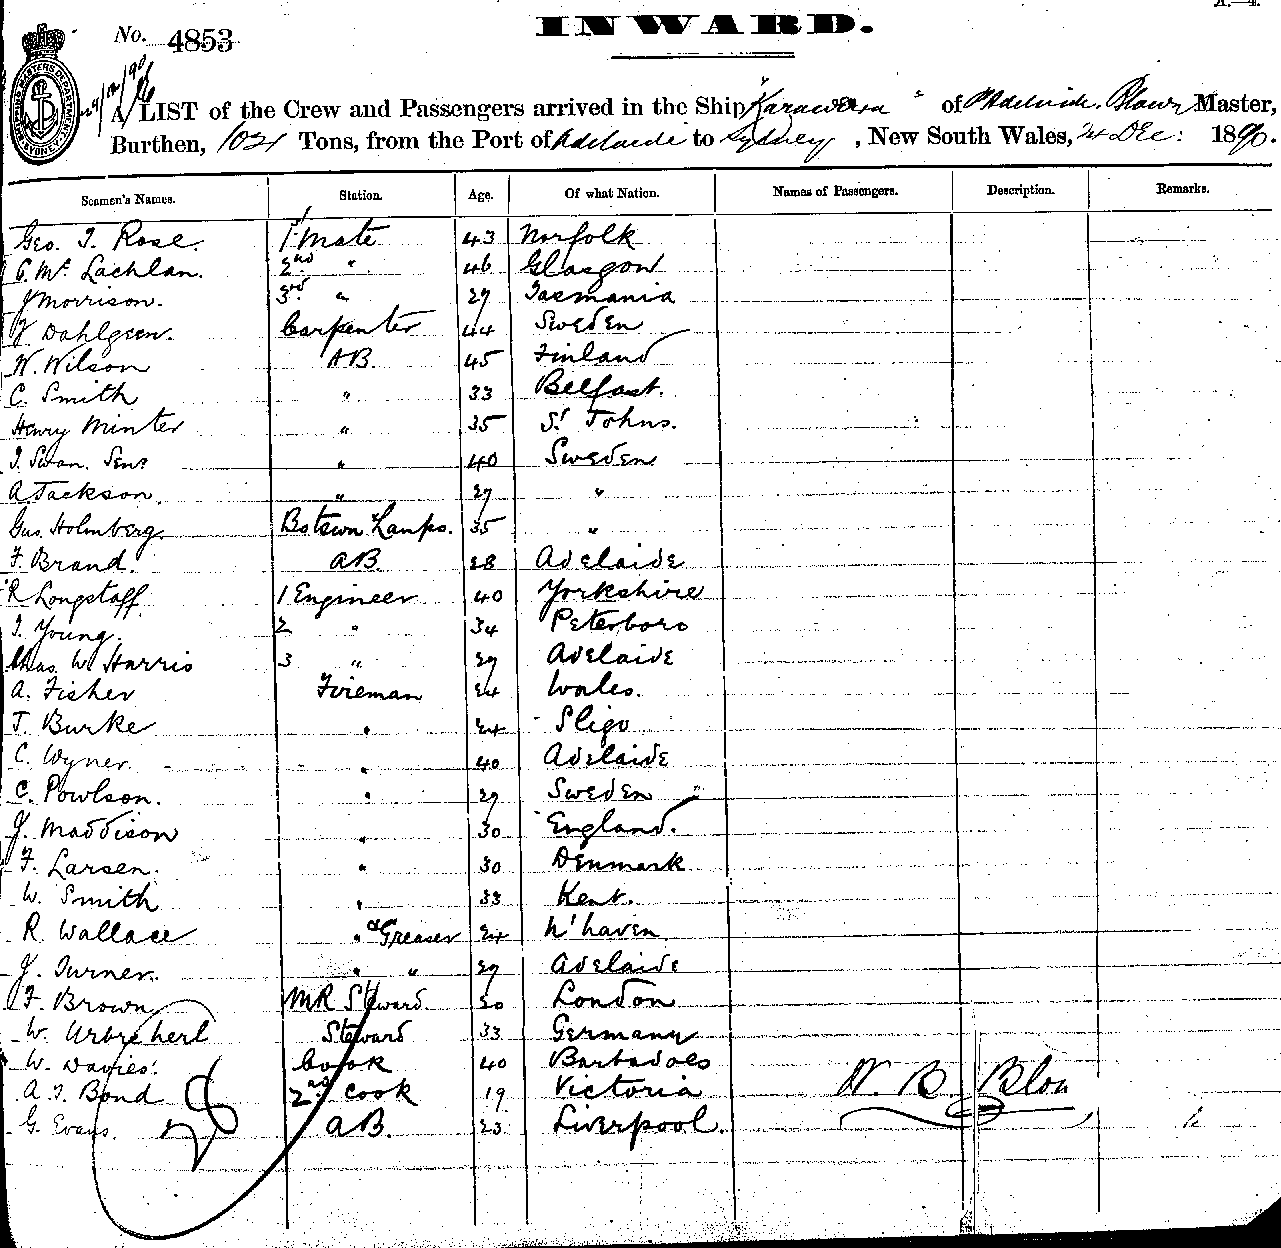 INWARD.
No. 4853
A LIST of the Crew and Passengers arrived in the Ship "Karaweera" of Adelaide, Master,
Burthen, 1021 Tons, from the Port of Adelaide to Sydney, New South Wales, 24 Dec: 1890.
Seamen's Names. Station. Age. Of what Nation. Names of Passengers. Description. Remarks.
Geo. T. Rose. 1st Mate 43 Norfolk
C. McLachlan. 2nd " 46 Glasgow
J Morrison. 3rd " 27 Tasmania
F. Dahlgren. Carpenter 44 Sweden
W. Wilson AB. 45 Finland
C. Smith " 33 Belfast.
Henry Minter " 35 St Johns.
J. Swan. Senr " 40 Sweden
A Jackson. " 27 "
Gus. Holmberg. Bstswn Lamps. 35 "
F. Brand. AB. 28 Adelaide
R Longstaff 1 Engineer 40 Yorkshire
J. Young. 2 " 34 Peterboro
Chas. W. Harris 3 " 29 Adelaide
A. Fisher Fireman 24 Wales.
J. Burke " 24 Sligo
C. Wyner. " 40 Adelaide
C. Powlson. " 29 Sweden "
J. Maddison " 30 England.
F. Larsen. " 30 Denmark
W. Smith " 33 Kent.
R. Wallace " & Greaser 24 N'haven
J. Turner. " " 29 Adelaide
F. Brown MR Steward. 30 London
W. Steward 33 Germany
W. Davies. Cook 40 Barbadoes
A. J. Bond 2nd Cook 19 Victoria
W. B. Blou
G. Evans. AB. 23 Liverpool.